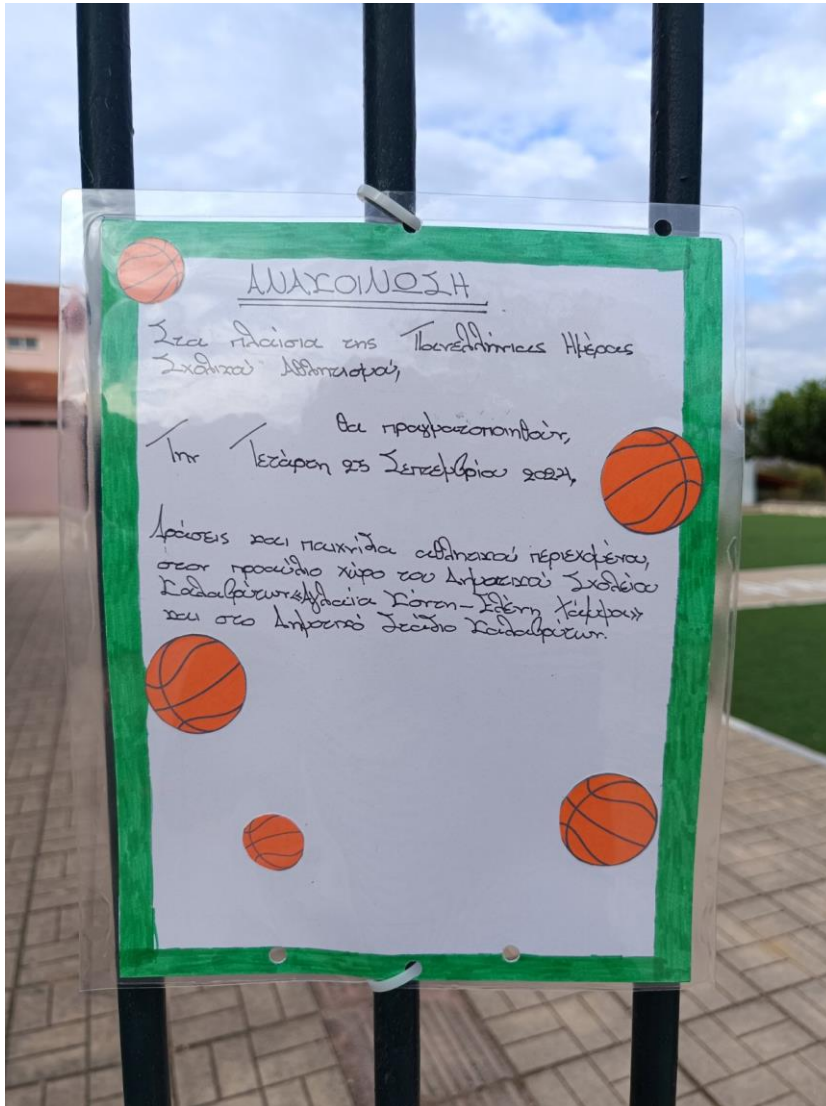 ΑΝΑΚΟΙΝΩΣΗ
Στα πλαίσια της Πανελλήνιας Ημέρας
Σχολικού Αθλητισμού,
θα πραγματοποιηθούν,
Την Τετάρτη 25 Σεπτεμβρίου 2024,
Δράσεις και παιχνίδια αθλητικού περιεχομένου,
στον προαύλιο χώρο του Δημοτικού Σχολείου
Καλαβρύτων «Αγλαΐα Κόντη - Ελένη Χάμψα»
και στο Δημοτικό Στάδιο Καλαβρύτων.